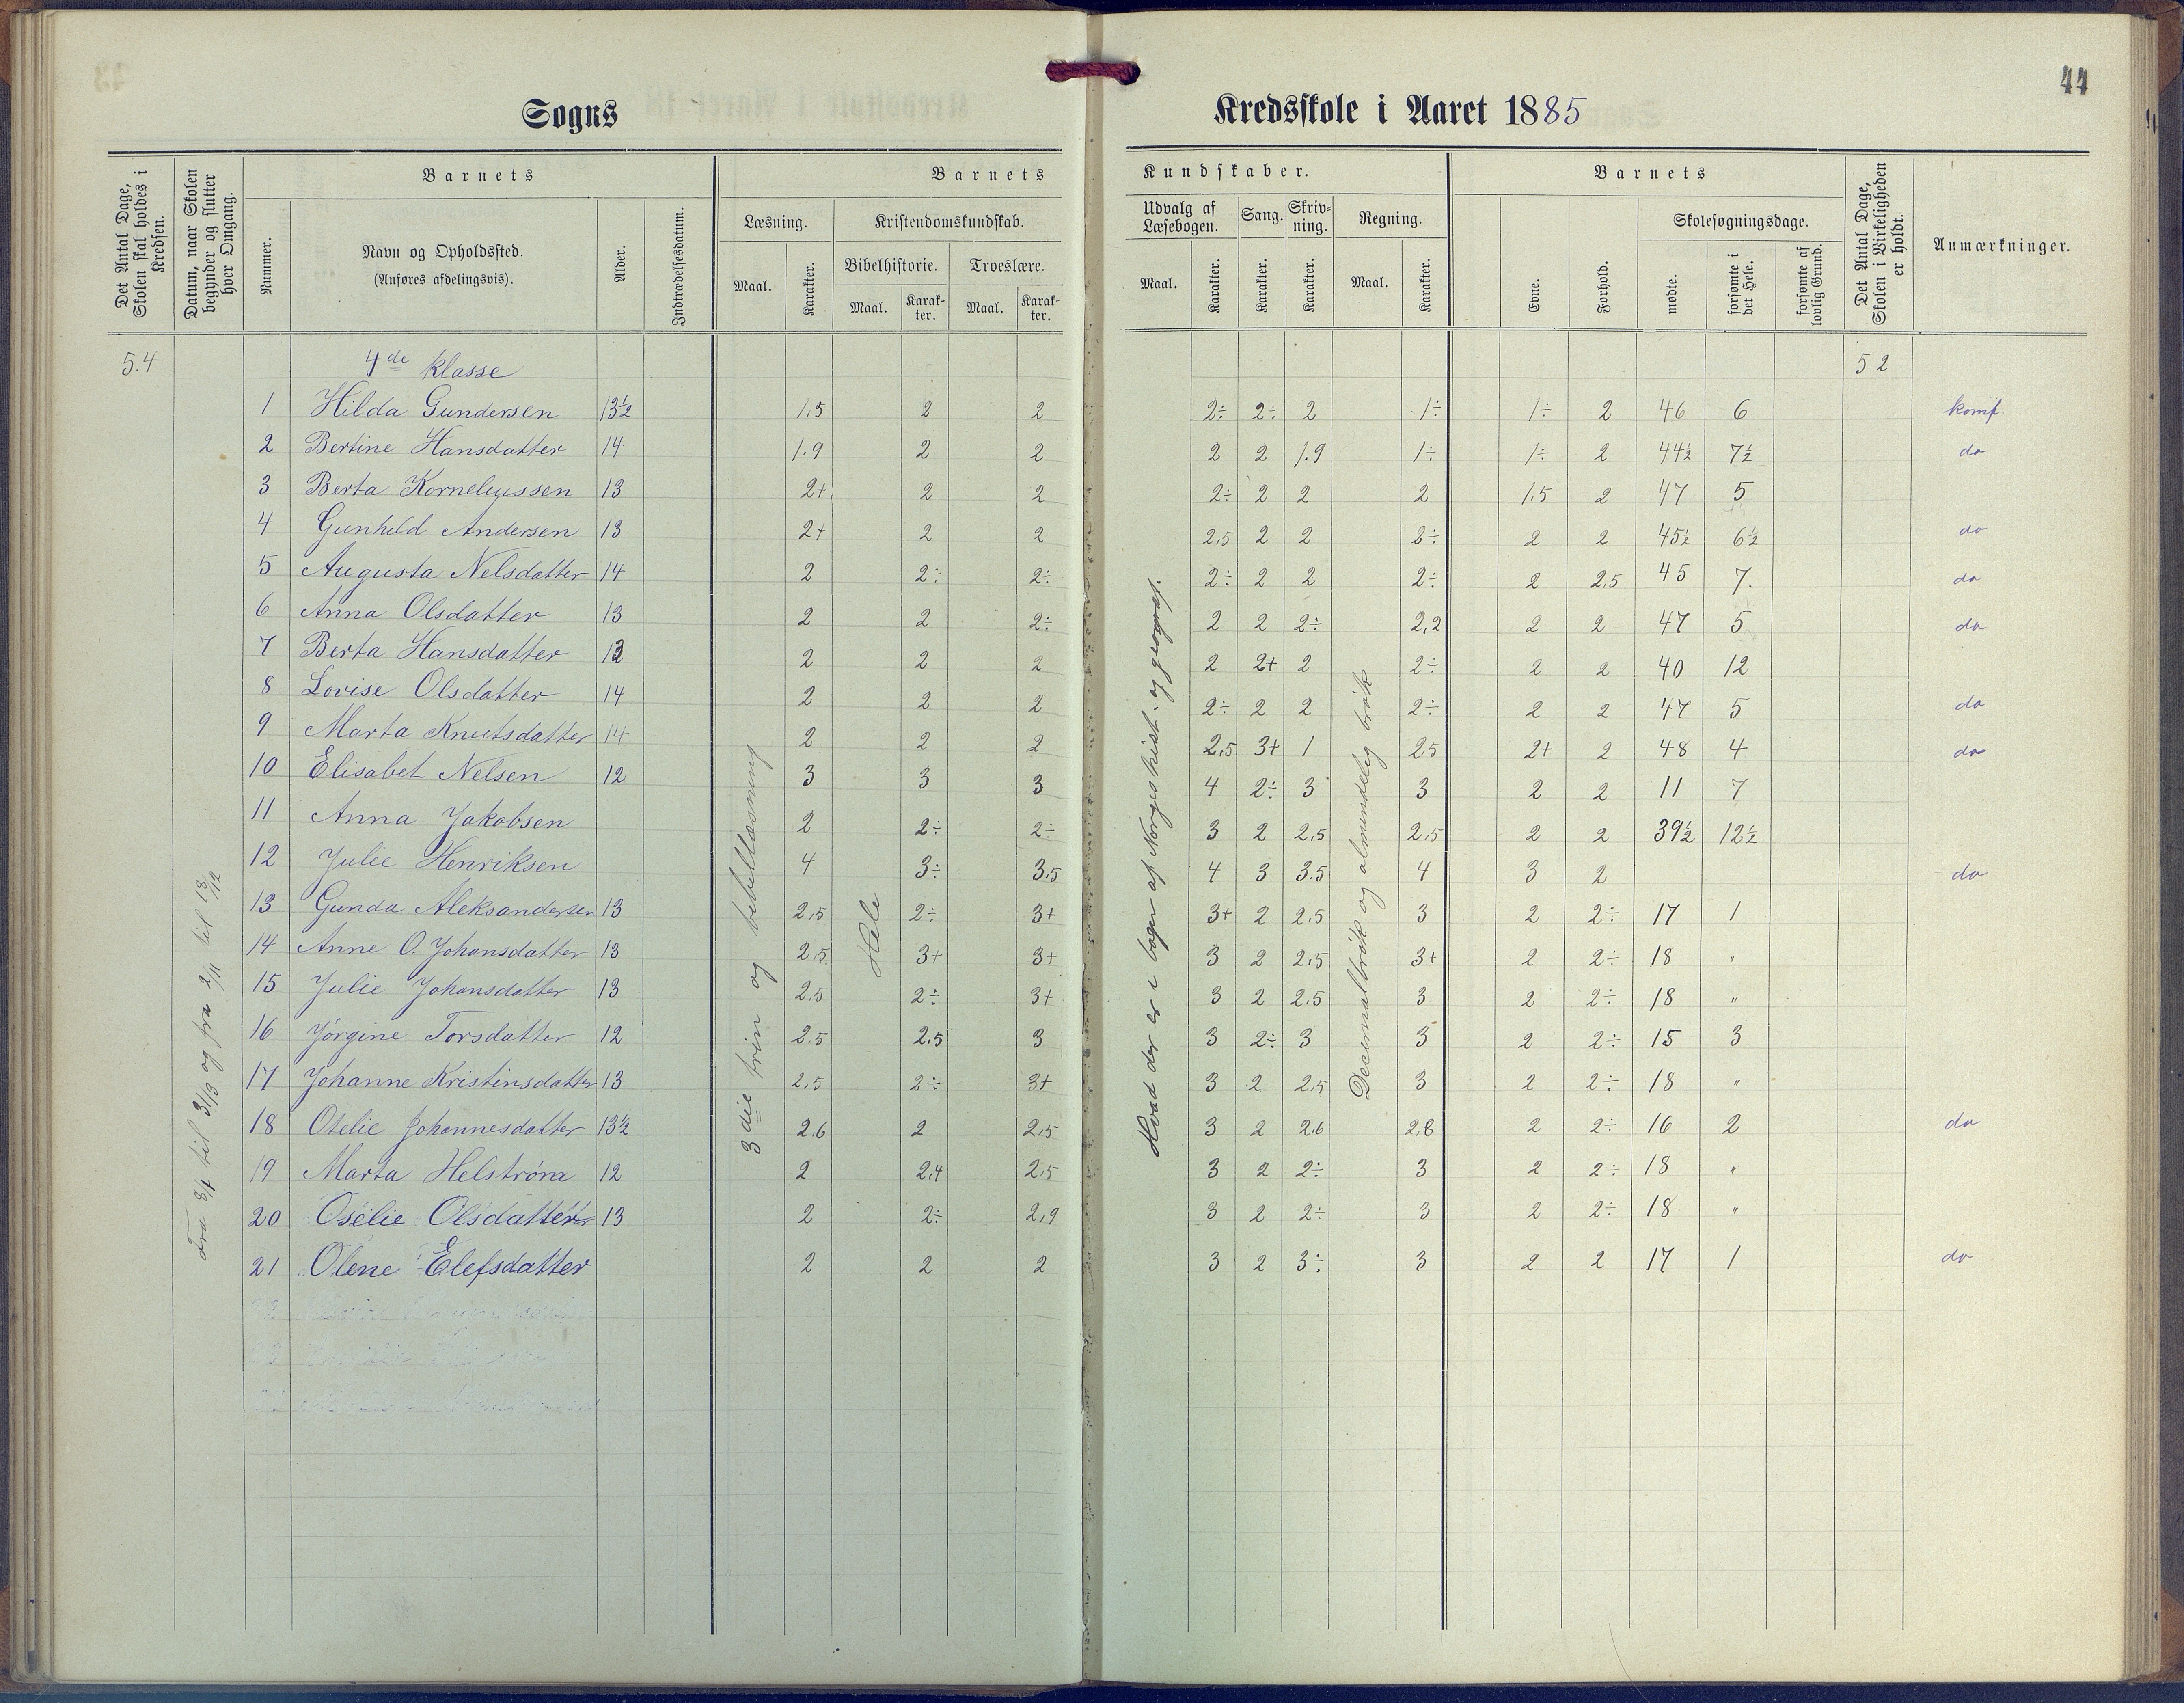 44
Sogns Kredsskole i Aaret 1885
Det Antal Dage, Skolen skal holdes i Kredsen.
Datum, naar Skolen begynder og slutter hver Omgang.
Barnets
Nummer.
Navn og Opholdssted.
(Anføres afdelingsvis).
Alder.
Indtrædelsesdatum.
Barnets Kundskaber.
Læsning.
Maal. Karakter.
Kristendomskundskab.
Bibelhistorie. Troeslære.
Maal. Karakter. Maal. Karakter.
Udvalg af Læsebogen. Sang. Skrivning. Regning.
Maal. Karakter. Karakter. Karakter. Maal. Karakter.
Barnets
Evne. Forhold.
Skolesøgningsdage.
mødte. forsømte i det Hele. forsømte af lovlig Grund.
Det Antal Dage, Skolen i Virkeligheden er holdt.
Anmærkninger.
54 4de klasse 52
1 Hilda Gundersen 13½ 1,5 2 2 2÷ 2÷ 2 1÷ 1÷ 2 46 6 komf.
2 Bertine Hansdatter 14 1.9 2 2 2 2 1.9 1÷ 1÷ 2 44½ 7½ do
3 Berta Kornelyussen 13 2+ 2 2 2÷ 2 2 2 1.5 2 47 5
4 Gunhild Andersen 13 2+ 2 2 2,5 2 2 2÷ 2 2 45½ 6½ do
5 Augusta Nelsdatter 14 2 2÷ 2÷ 2÷ 2 2 2÷ 2 2,5 45 7. do
6 Anna Olsdatter 13 2 2 2÷ 2 2 2÷ 2,2 2 2 47 5 do
7 Berta Hansdatter 12 2 2 2 2 2+ 2 2÷ 2 2 40 12
8 Lovise Olsdatter 14 2 2 2 2÷ 2 2 2÷ 2 2 47 5 do
9 Marta Knutsdatter 14 2 2 2 2,5 3+ 1 2,5 2+ 2 48 4 do
10 Elisabet Nelsen 12 3 3 3 4 2÷ 3 3 2 2 11 7
11 Anna Jakobsen 2 2÷ 2÷ 3 2 2,5 2,5 2 2 39½ 12½
12 Julie Henriksen 4 3÷ 3,5 4 3 3.5 4 3 2 do
13 Gunda Aleksandersen 13 2,5 2÷ 3+ 3+ 2 2.5 3 2 2÷ 17 1
14 Anne O. Johansdatter 13 2,5 3+ 3+ 3 2 2,5 3+ 2 2÷ 18 "
15 Julie Johansdatter 13 2,5 2÷ 3+ 3 2 2.5 3 2 2÷ 18 "
16 Jörgine Torsdatter 12 2.5 2,5 3 3 2÷ 3 3 2 2÷ 15 3
17 Johanne Kristinsdatter 13 2,5 2÷ 3+ 3 2 2,5 3 2 2÷ 18 "
18 Otelie Johannesdatter 13½ 2,6 2 2,5 3 2 2,6 2,8 2 2÷ 16 2 do
19 Marta Helstrøm 12 2 2,4 2,5 3 2 2÷ 3 2 2÷ 18 "
20 Osélie Olsdatter 13 2 2÷ 2,9 3 2 2÷ 3 2 2÷ 18 "
21 Olene Elefsdatter 2 2 2 3 2 3÷ 3 2 2 17 1 do
Fra 8/1 til 3/3 og fra 2/11 til 18/12
3die trin og bibellæsning
Hele
Hvad der er i bogen af Norges hist. og geograf.
Decemalbrök og almindelig brök